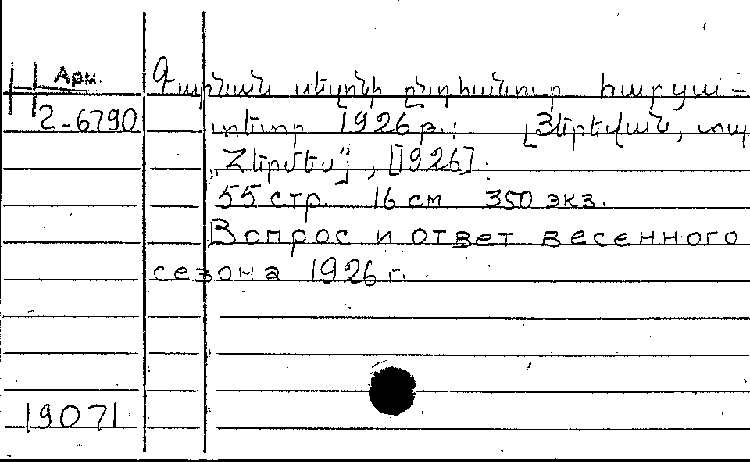 Арм.
2-6790
Գարնան սեզոնի ընդհանուր հարցա-
տետր 1926 թ.: [Յերեվան, տպ
„Հերմես"], [1926].
55 стр. 16 см 350 экз.
Вопрос и ответ весенного
сезона 1926 г.
19071